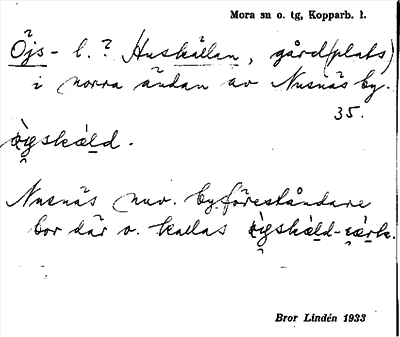 Mora sn o. tg, Kopparb. l.
Öjs- l. ? Huskällan, gård(plats)
i norra ändan av Nusnäs by.
35.
Nusnäs nuv. byföreståndare
bor där o. kallas
Bror Lindén 1933